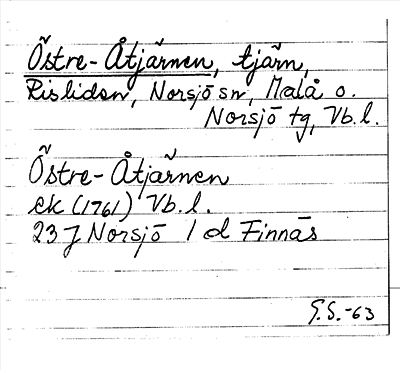 Östre-Åtjärnen, tjärn,
Risliden, Norsjö sn, Malå o.
Norsjö tg, Vb.l.
Östre-Åtjärnen
ek (1761) Vb.l.
23 J Norsjö 1 d Finnäs
G.S.-63